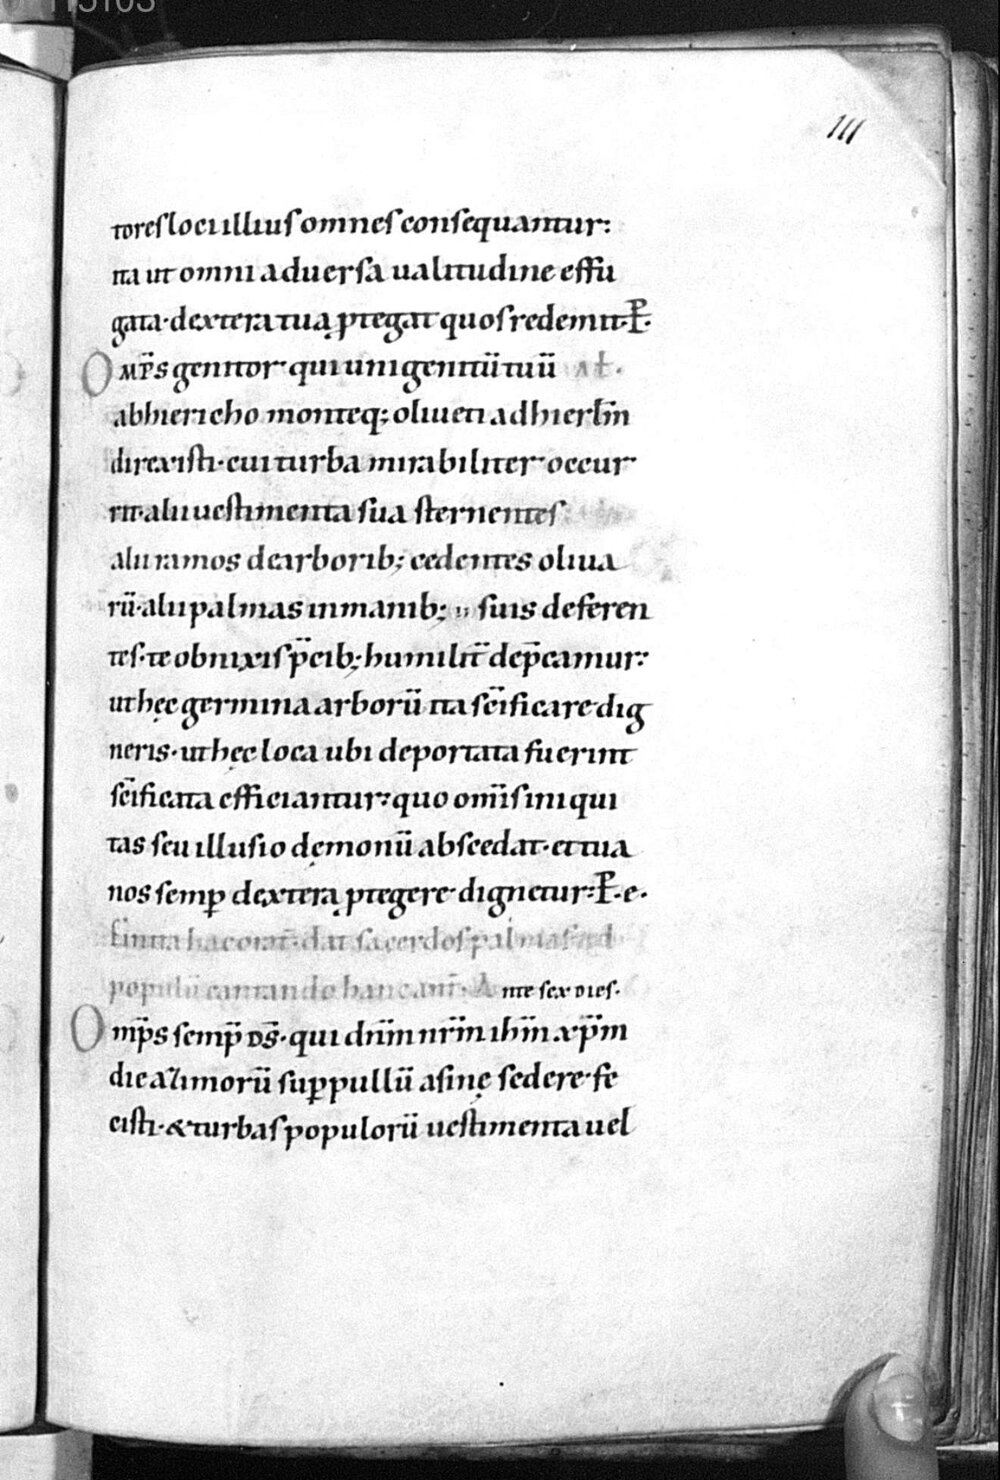 115103
111
toreſ loci illiuſ omneſ conſequantur:
ita ut omni aduerſa ualitudine effu
gata· dextera tuą ꝓtegat quoſ redemit· P̄·
OMP̄S genitor· qui unigenitū tuū al·
abhiericho monteq; oliueti adhierl̄m
direxiſti· cui turba mirabiliter occur
rit· alii ueſtimenta ſua ſternenteſ
alii ramos dearborib; cedentes oliua
rū· alii palmas inmanib; ſuis deferen
teſ· te obnixiſ p̄cib; humilit̄ dep̄camur:
ut hęc germina arborū ita ſc̄ificare dig
neris· ut hęc loca ubi deportata fuerint
ſc̄ificata efficiantur: quo om̄iſ iniqui
tas ſeu illuſio dęmonū abſcedat· et tua
nos ſemꝑ dexterą ꝓtegere dignetur: P̄· e·
finita hac orat̄· dat ſacerdoſ palmaſ ad
populū cantando hanc ant̄· Ante ſex dieſ·
Omp̄s ſemp̄ DS̄· qui dn̄m nr̄m ih̄m xp̄m
die azimorū ſuꝑ pullū aſinę ſedere fe
ciſti· & turbaſ populorū ueſtimenta uel